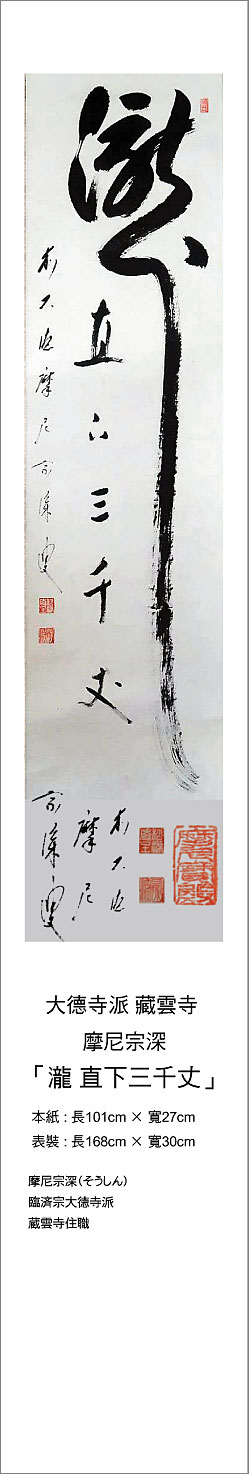 瀧
直下三千丈
前大德摩尼宗深叟
前大德
摩尼
宗深叟
大德寺派 藏雲寺
摩尼宗深
「瀧 直下三千丈」
本紙：長101cm × 寬27cm
表裝：長168cm × 寬30cm
摩尼宗深（そうしん）
臨済宗大徳寺派
蔵雲寺住職